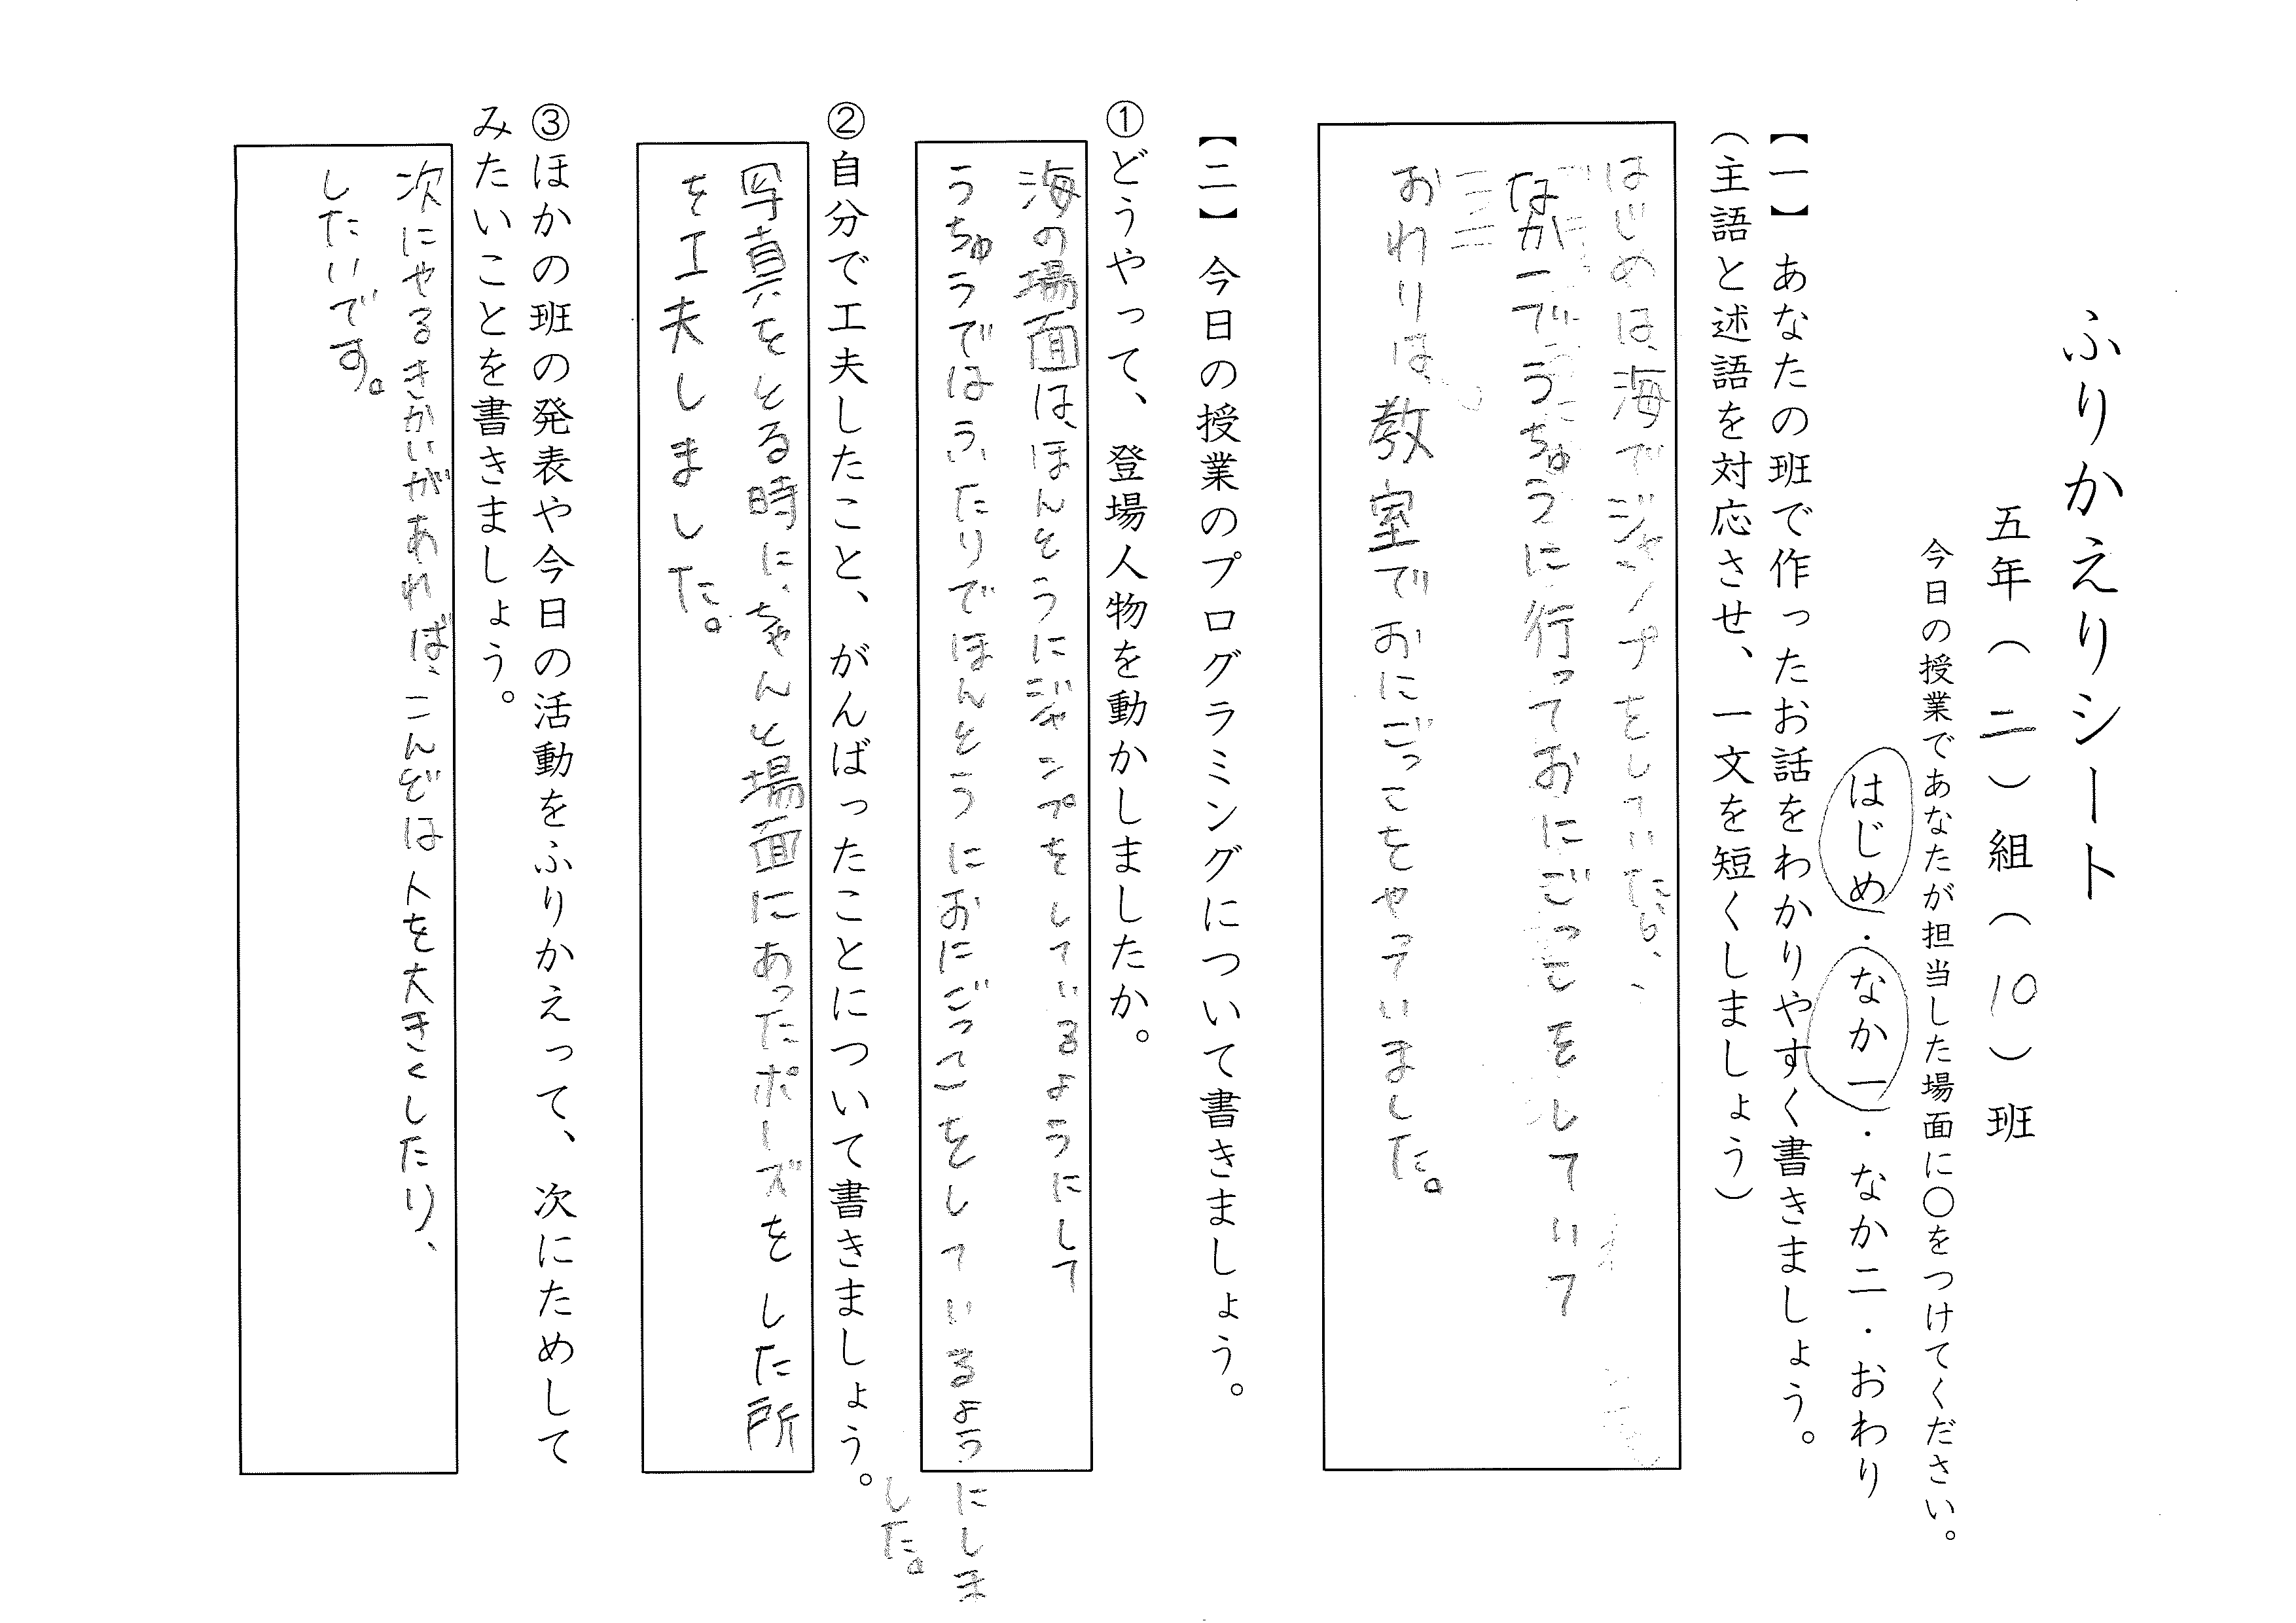 ふりかえりシート
五年（二）組（10）班
今日の授業であなたが担当した場面に○をつけてください。
はじめ・なか一・なか二・おわり
【一】あなたの班で作ったお話をわかりやすく書きましょう。
（主語と述語を対応させ、一文を短くしましょう）
はじめは、海でジャンプをしていたら、
なか一でうちゅうに行っておにごっこをしていて
おわりは、教室でおにごっこをやっていました。
【二】今日の授業のプログラミングについて書きましょう。
①どうやって、登場人物を動かしましたか。
海の場面は、ほんとうにジャンプをしているようにして
うちゅうではふたりでほんとうにおにごっこをしているようにしま
した。
②自分で工夫したこと、がんばったことについて書きましょう。
写真をとる時に、ちゃんと場面にあったポーズをした所
を工夫しました。
③ほかの班の発表や今日の活動をふりかえって、次にためして
みたいことを書きましょう。
次にやるきかいがあれば、こんどは人を大きくしたり、
したいです。